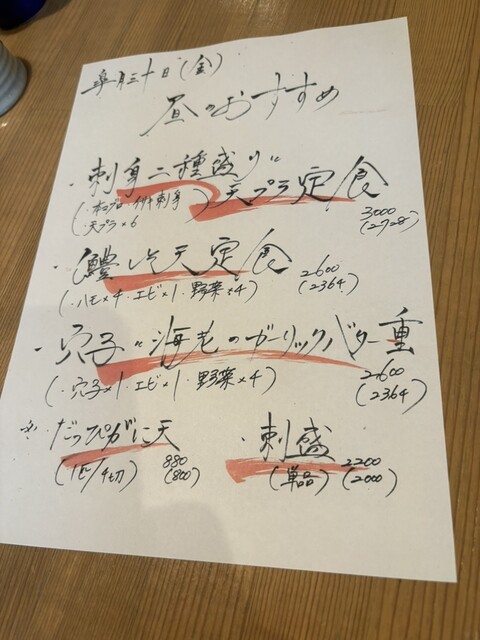 月三十日(金)
昼のおすすめ
・刺身二種盛りと
天プラ定食
(・本マグロ・イサキ刺身
・天プラ×6)
3000
(2728)
・鱧と天定食
(・ハモ×4・エビ×1・野菜×4)
2600
(2364)
・穴子と海老のガーリックバター重
(・穴子×1・エビ×1・野菜×4)
2600
(2364)
だっぴがに天
(1匹/4切)
880
(800)
・刺盛
(単品)
2200
(2000)